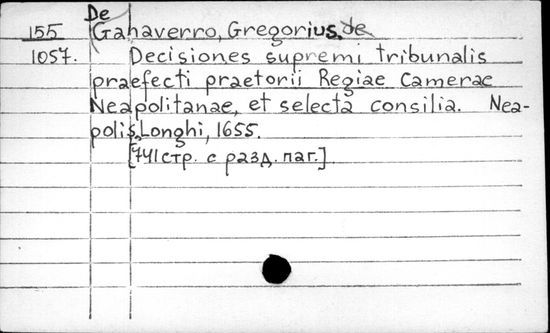 De
155 Gahaverro, Gregorius, de
1057. Decisiones supremi tribunalis
praefecti praetorii Regiae Camerae
Neapolitanae, et selecta consilia. Nea-
polis, Longhi, 1655.
[741 стр. с разд. паг.]